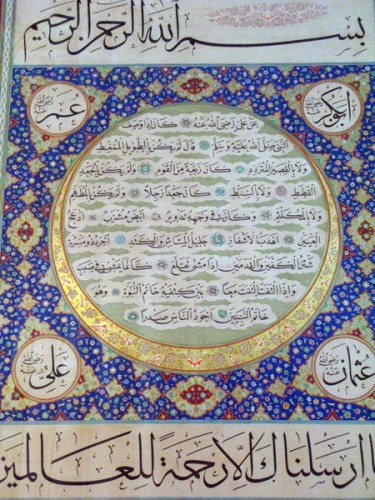 بسم الله الرحمن الرحيم
ابو بكر رضي الله عنه
عمر رضي الله عنه
عن علي رضي الله عنه كان اذا وصف
النبي صلى الله عليه وسلم قال لم يكن بالطويل الممغط
ولا بالقصير المتردد كان ربعة من القوم ولم يكن بالجعد
القطط ولا بالسبط كان جعدا رجلا ولم يكن بالمطهم
ولا بالمكلثم وكان في وجهه تدوير ابيض مشرب ادعج
العينين اهدب الاشفار جليل المشاش والكتد اجرد ذو مسربة
شثن الكفين والقدمين اذا مشى تقلع كانما يمشي في صبب
واذا التفت التفت معا بين كتفيه خاتم النبوة وهو
خاتم النبيين اجود الناس صدرا
عثمان رضي الله عنه
علي رضي الله عنه
ارسلناك إلا رحمةً للعالمين